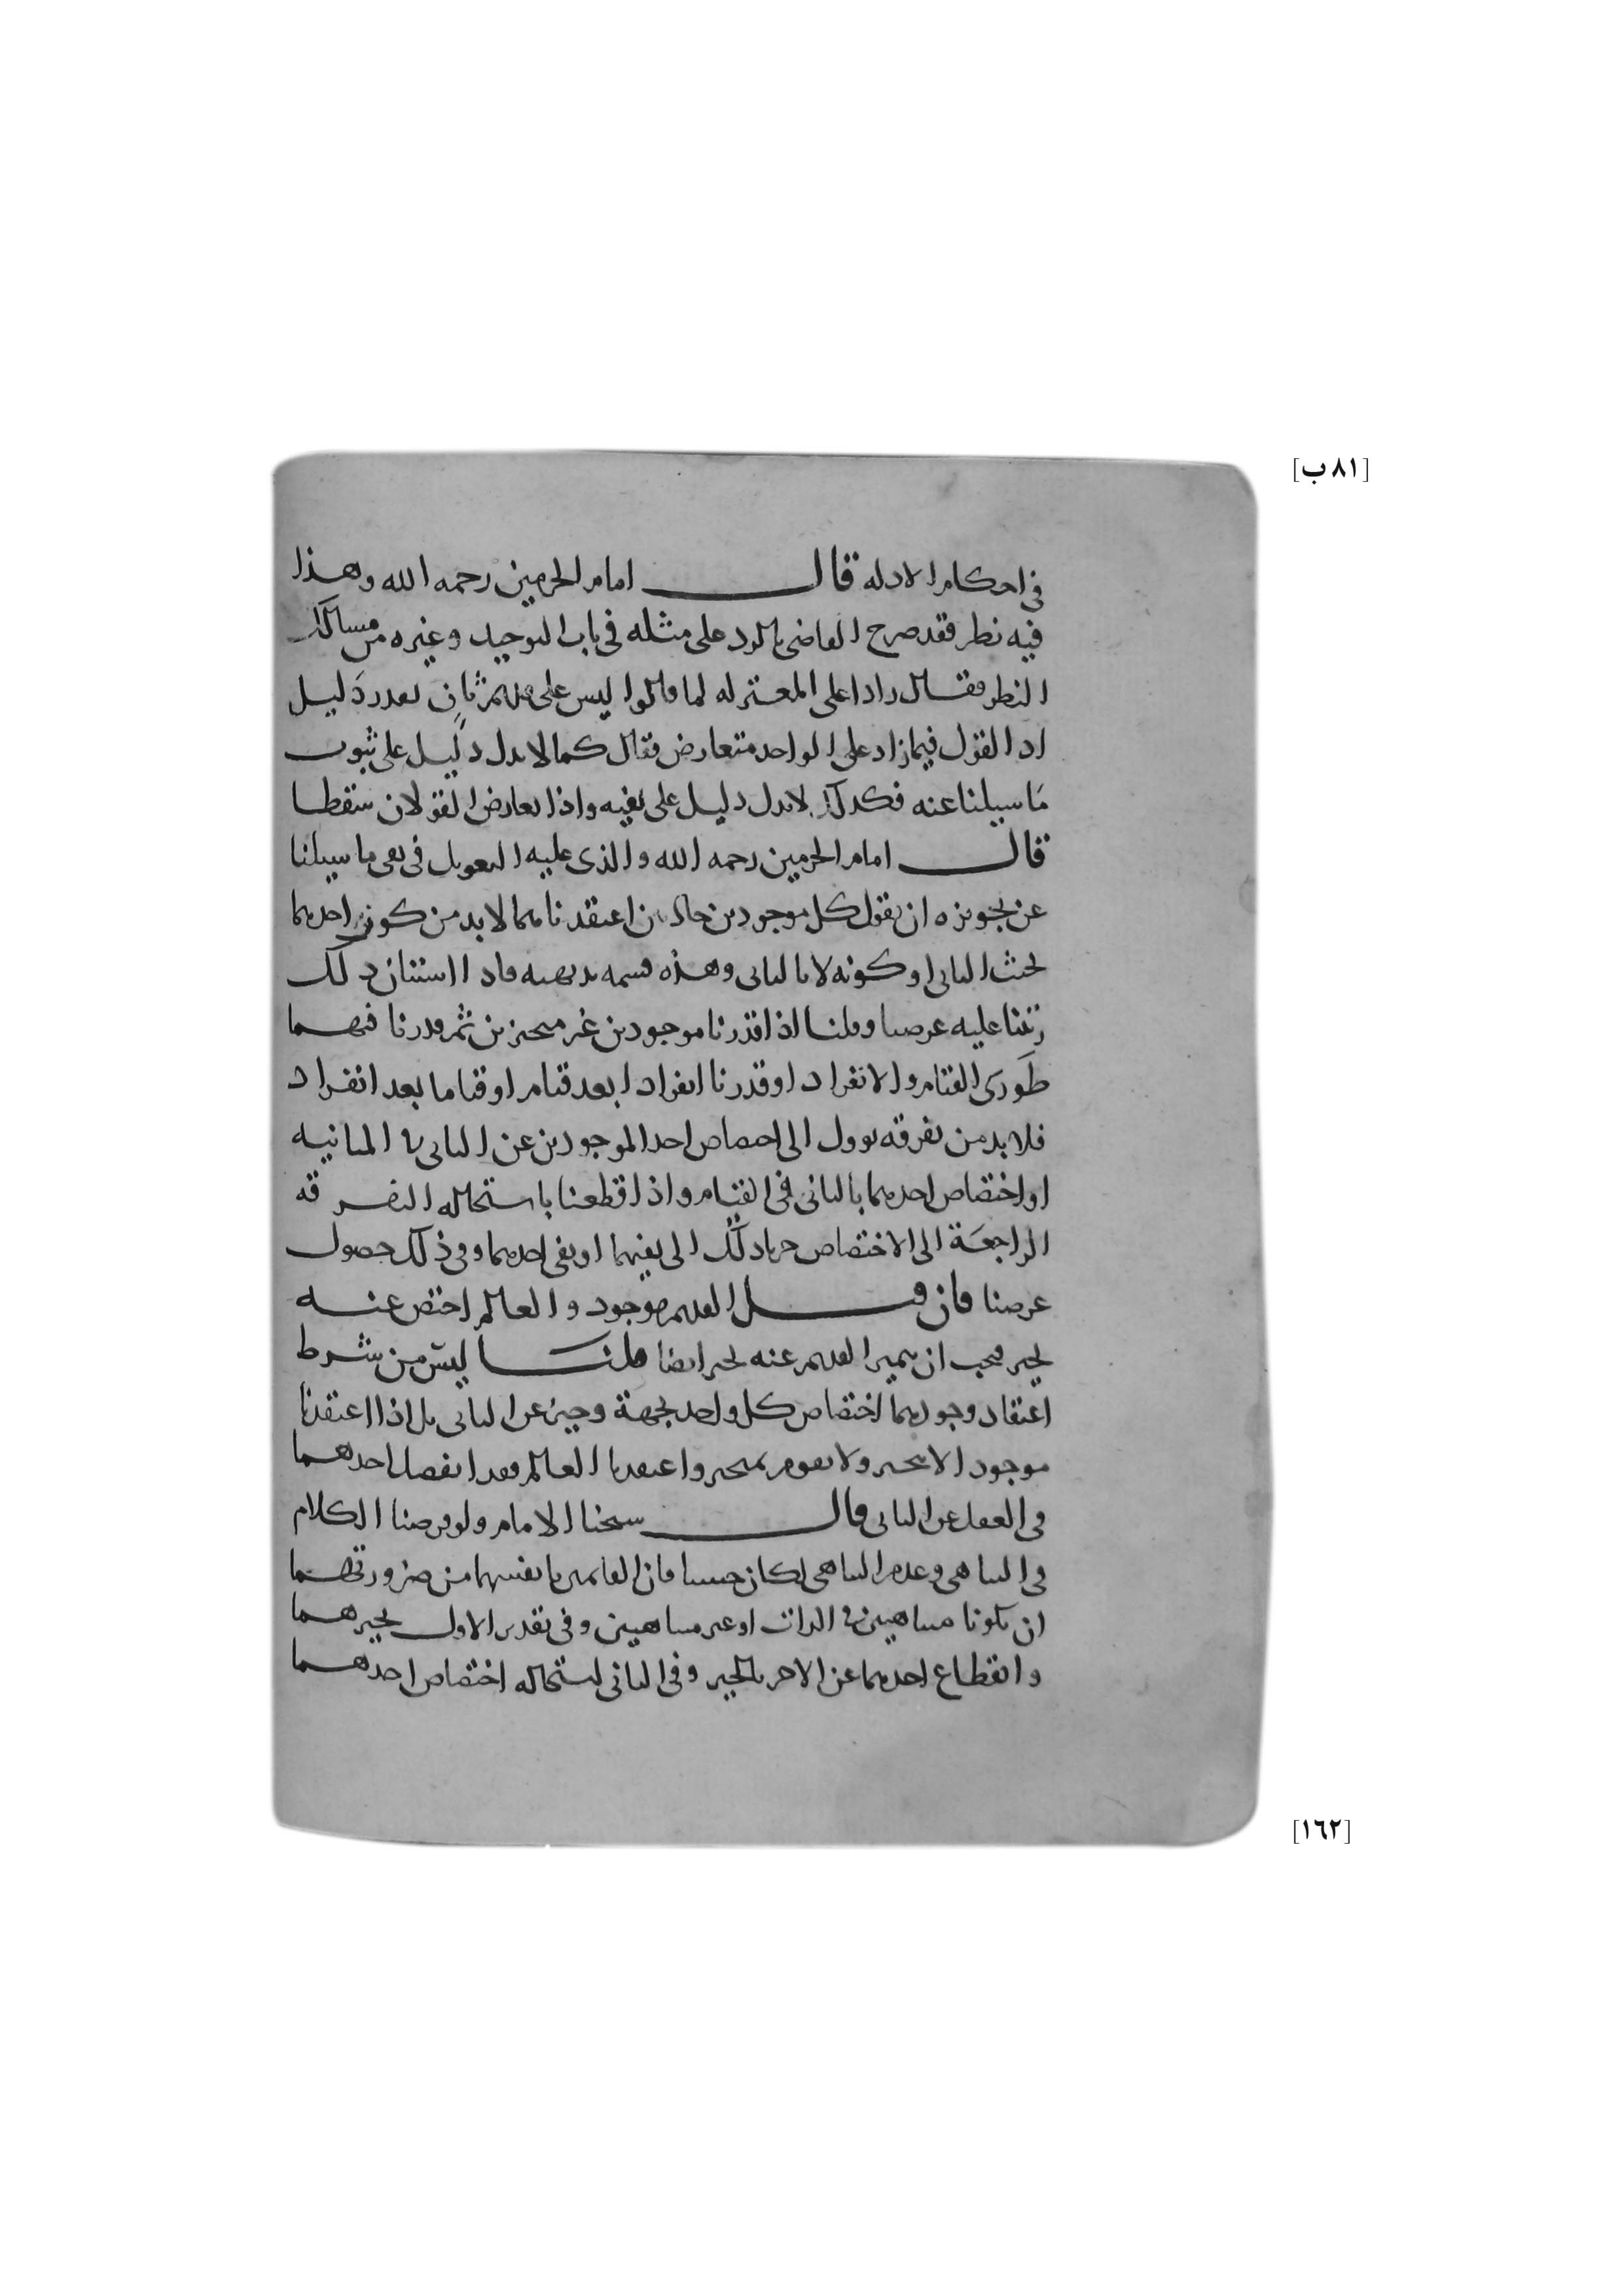 [٨١ ب]
في احكام الادله قال امام الحرمين رحمه الله وهذا
فيه نظر فقد صرح القاضي بالرد على مثله في باب التوحيد وغيره من مسالك
النظر فقال رادا على المعتزله لما قالوا ليس على قديم ثانٍ تقدر دليل
اذ القول فيما زاد على الواحد متعارض فقال كما لا يدل دليل على ثبوت
ما سبيلنا عنه فكذلك لا يدل دليل على نفيه واذا تعارض القولان سقطا
قال امام الحرمين رحمه الله والذي عليه التعويل في نفي ما سبيلنا
عن تجويزه ان نقول كل موجودين حادثين اعتقدناهما لا بد من كون احدهما
بحيث الثاني او كونه لا بالثاني وهذه قسمه بديهيه فاذا استبان ذلك
رتبنا عليه غرضنا وقلنا اذا قدرنا موجودين غير متحيزين ثم قدرنا فيهما
طوري القيام والانفراد او قدرنا انفرادا بعد قيام او قياما بعد انفراد
فلا بد من تفرقه تؤول الى اختصاص احد الموجودين عن الثاني في المباينه
او اختصاص احدهما بالثاني في القيام واذا قطعنا باستحاله التفرقه
الراجعة الى الاختصاص جر ذلك الى نفيهما او نفي احدهما وفي ذلك حصول
غرضنا فان قيل القديم موجود والعالم اختص عنه
بحيز فيجب ان يتميز القديم عنه بحيز ايضا قلنا ليس من شرط
اعتقاد وجودهما اختصاص كل واحد بجهة وحيز عن الثاني بل اذا اعتقدنا
موجودا لا يتحيز ولا يقوم بمتحيز واعتقدنا العالم فقد انفصل احدهما
في العقل عن الثاني قال شيخنا الامام ولو فرضنا الكلام
في التناهي وعدم التناهي لكان حسنا فان القائمين بانفسهما من ضرورتهما
ان يكونا متناهيين في الذات او غير متناهيين وفي تقدير الاول تحيزهما
وانقطاع احدهما عن الاخر بالحيز وفي الثاني استحاله اختصاص احدهما
[١٦٢]